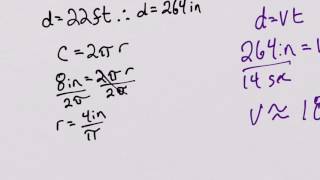 d=22ft ∴ d=264in
C=2πr
8in = 2πr
2π 2π
r = 4in
π
d=Vt
264in =
14 sec
V ≈ 18